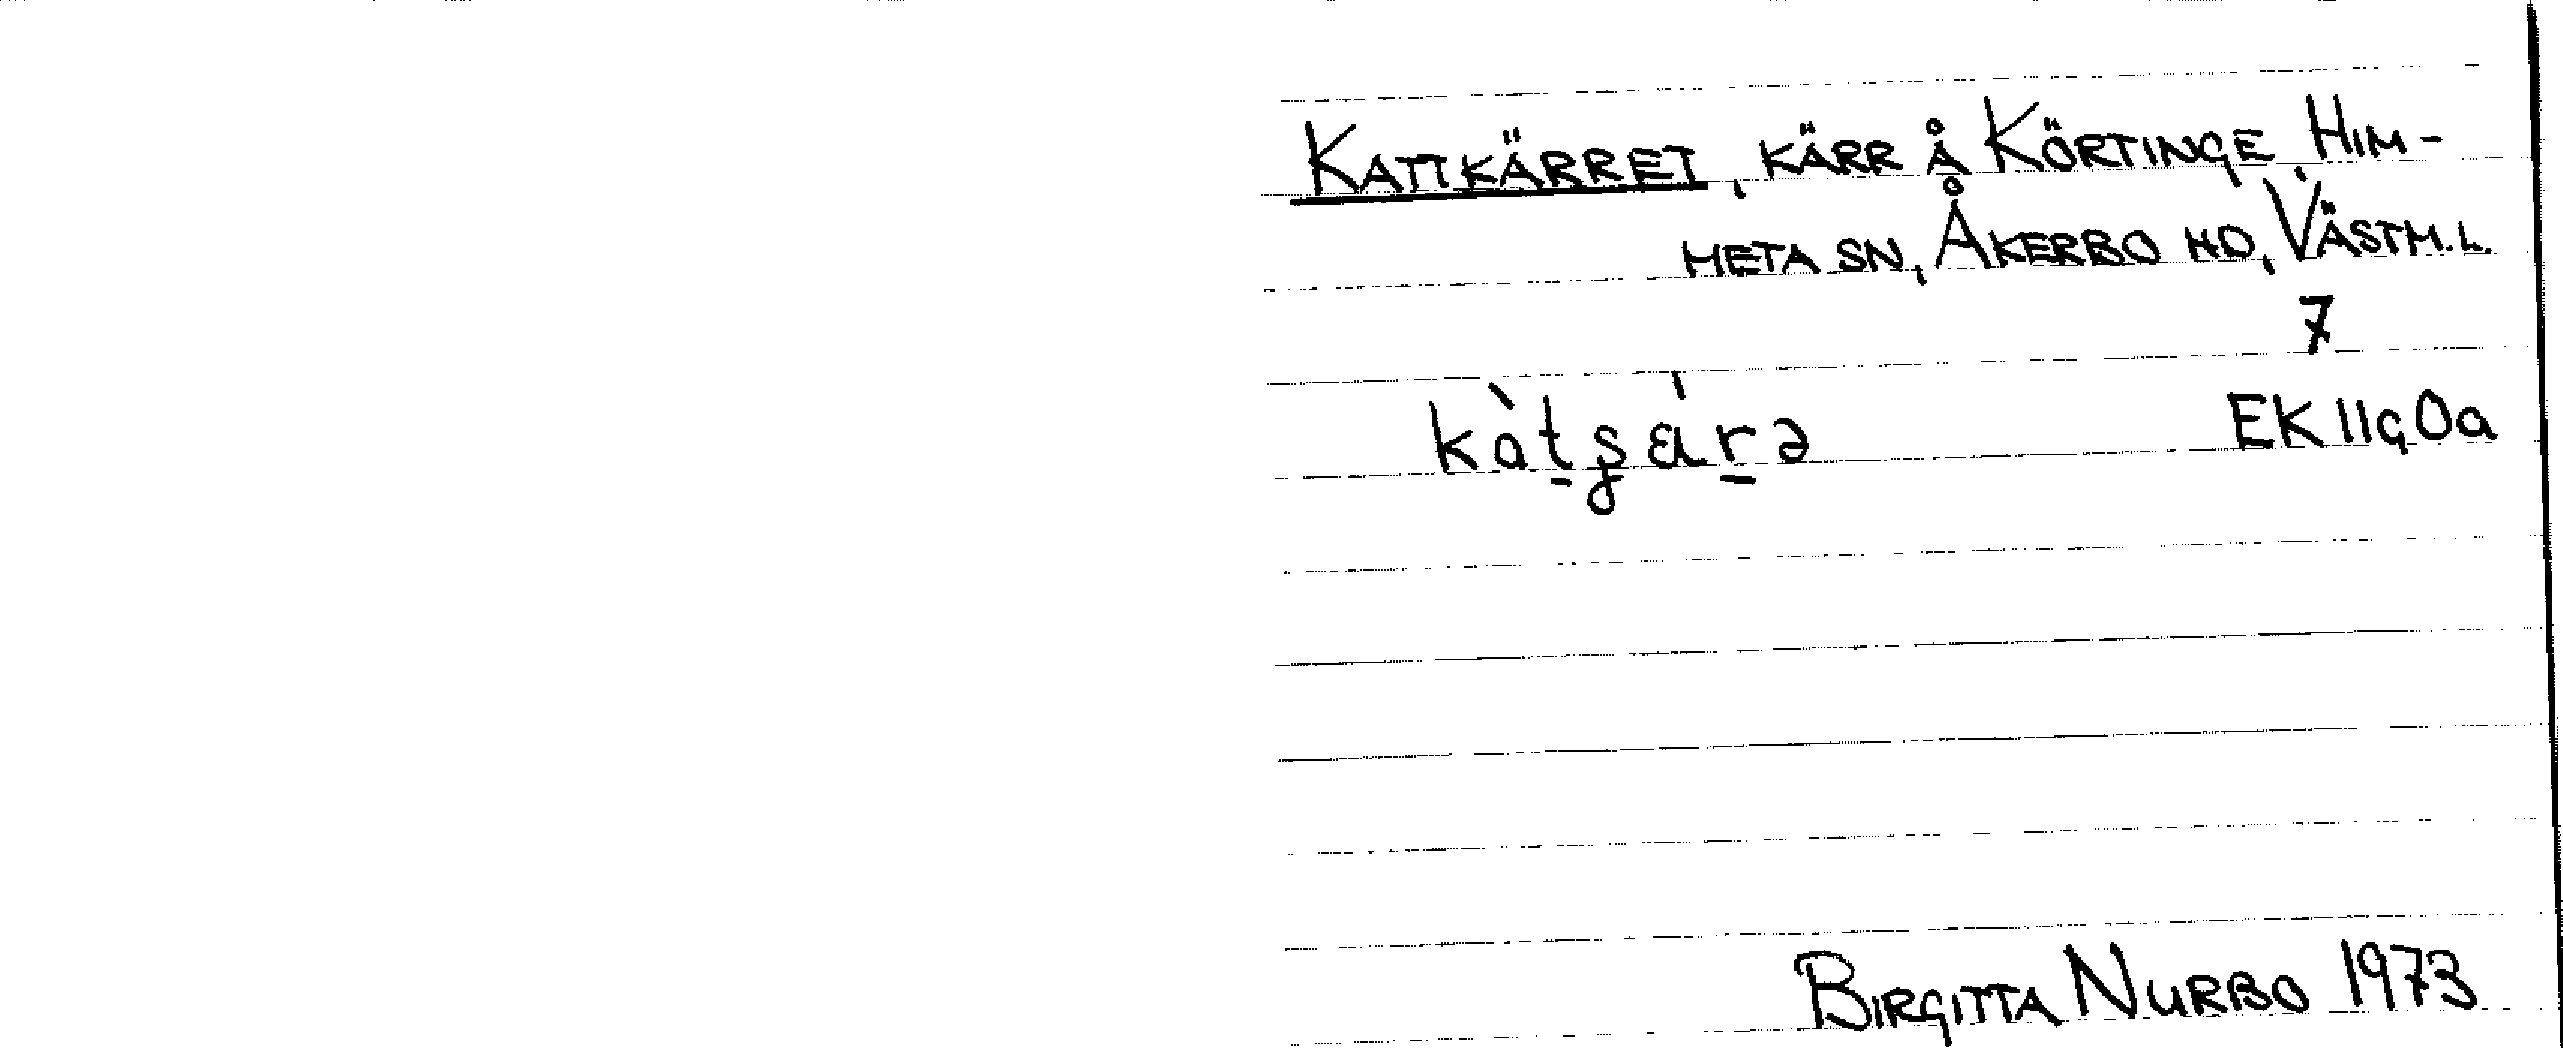 KATTKÄRRET, KÄRR Å KÖRTINGE, HIM-
META SN, ÅKERBO HD, VÄSTM.L.
7
EK 11G0a
BIRGITTA NURBO 1973